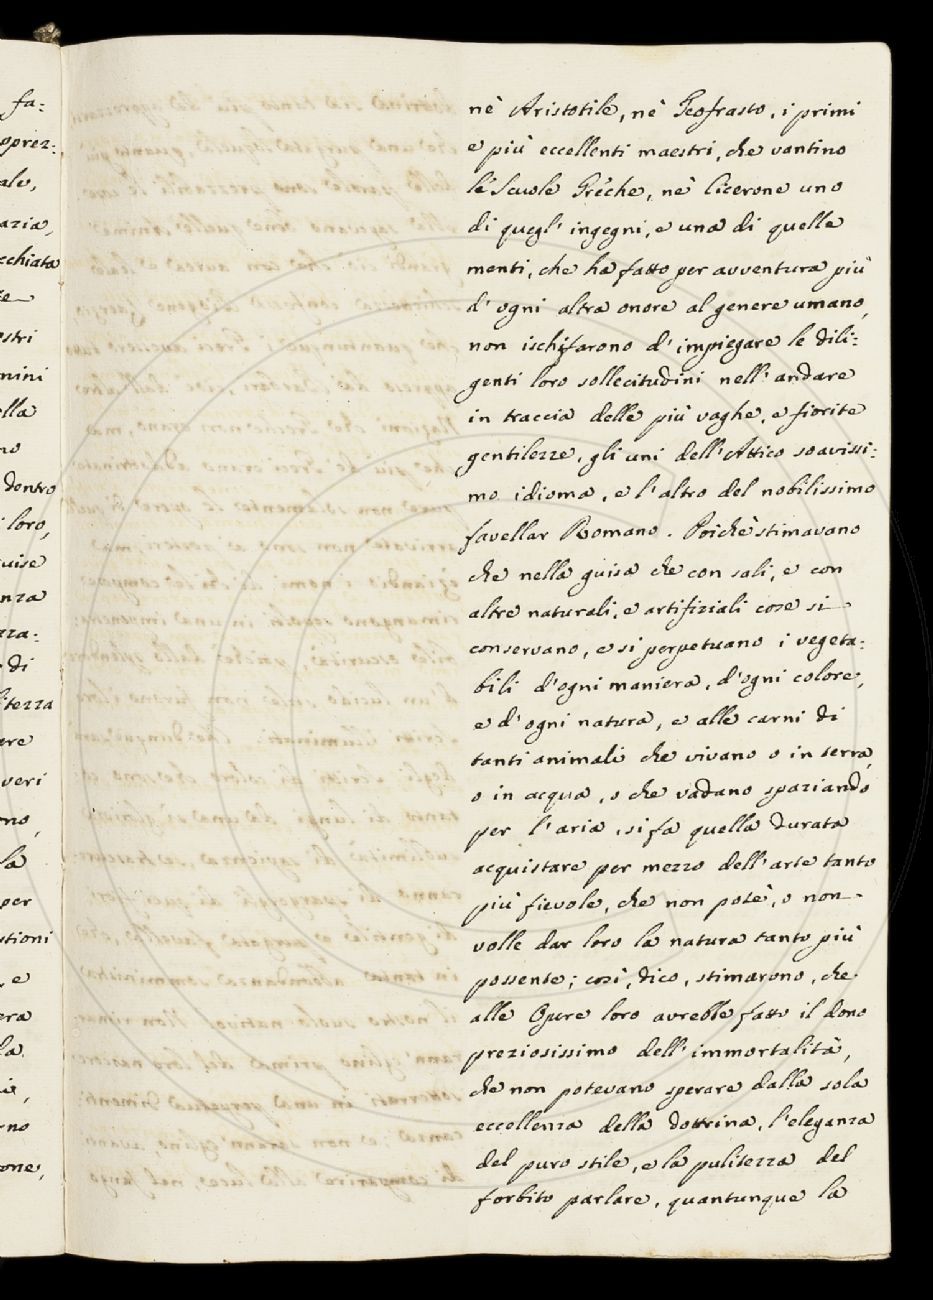 fa=
pprez=
ale,
azia,
cchiata
stri
mini
ella
no
dentro
i loro,
uise
nza
zza=
di
litezza
ere
veri
ono,
la
per
tioni
, e
era
la
no
one,
nè Aristotile, nè Teofrasto, i primi
e più eccellenti maestri, che vantino
le Scuole Grèche, nè Cicerone uno
di quegl' ingegni, e una di quelle
menti, che ha fatto per avventura più
d' ogni altra onore al genere umano,
non ischifarono d' impiegare le dili=
genti loro sollecitudini nell' andare
in traccia delle più vaghe, e fiorite
gentilezze, gli uni dell' Attico soavissi=
mo idioma, e l' altro del nobilissimo
favellar Romano. Poichè stimavano
che nella guisa che con sali, e con
altre naturali, e artifiziali cose si
conservano, e si perpetuano i vegeta=
bili d' ogni maniera, d' ogni colore,
e d' ogni natura, e alle carni di
tanti animali che vivano o in terra,
o in acqua, o che vadano spaziando
per l' aria, si fa quella durata
acquistare per mezzo dell' arte tanto
più fievole, che non potè, o non
volle dar loro la natura tanto più
possente; così, dico, stimarono, che
alle Opere loro avrebbe fatto il dono
preziosissimo dell' immortalità,
che non potevano sperare dalla sola
eccellenza della dottrina, l' eleganza
del puro stile, e la pulitezza del
forbito parlare, quantunque la